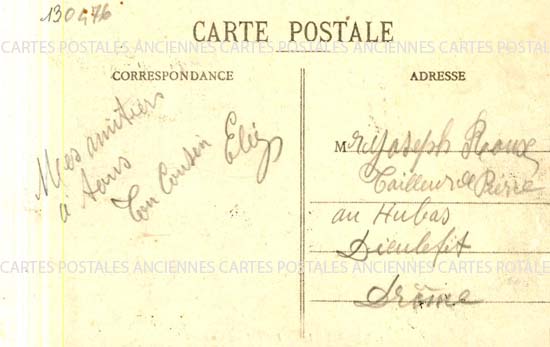 130476
CARTE POSTALE
CARTES POSTALES ANCIENNES CARTES POSTALES ANCIENNES CARTES POSTALES
CORRESPONDANCE
ADRESSE
Mes amitiés
à tous
Ton Cousin Elie
Mr Joseph Roux
Tailleur de Pierre
au Hubas
Dieulefit
Drôme
CARTES POSTALES ANCIENNES CARTES POSTALES ANCIENNES CARTES POSTALES